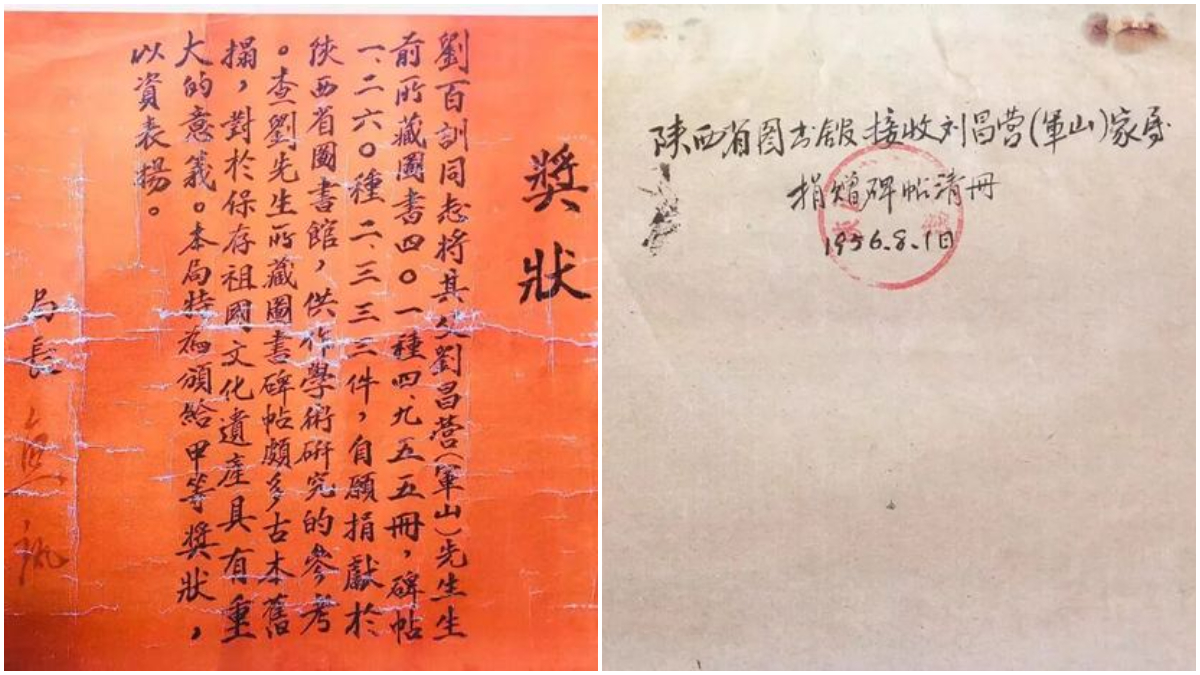 獎狀
劉百訓同志將其父劉昌營(軍山)先生生
前所藏圖書四〇一種四、九五五冊，碑帖
一、二六〇種二、三三三件，自願捐獻於
陝西省圖書館，供作學術研究的參考
。查劉先生所藏圖書碑帖頗多古本舊
搨，對於保存祖國文化遺產具有重
大的意義。本局特為頒給甲等獎狀，
以資表揚。
局長
陕西省图书馆接收刘昌营(軍山)家屬
捐贈碑帖清册
1956.8.1日